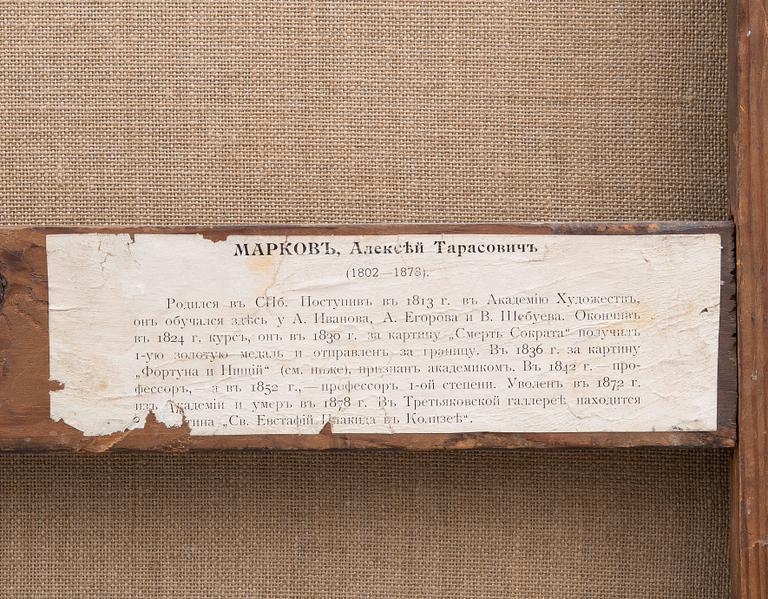 МАРКОВЪ, Алексѣй Тарасовичъ
(1802—1878).
Родился въ СПб. Поступивъ въ 1813 г. въ Академію Художествъ,
онъ обучался здѣсь у А. Иванова, А. Егорова и В. Шебуева. Окончивъ
въ 1824 г. курсъ, онъ въ 1830 г. за картину „Смерть Сократа“ получилъ
1-ую золотую медаль и отправленъ за границу. Въ 1836 г. за картину
„Фортуна и Нищій“ (см. ниже), признанъ академикомъ. Въ 1842 г.—про-
фессоръ, а въ 1852 г.,—профессоръ 1-ой степени. Уволенъ въ 1872 г.
изъ Академіи и умеръ въ 1878 г. Въ Третьяковской галлереѣ находится
„Св. Евстафій Плакида въ Колизеѣ“.